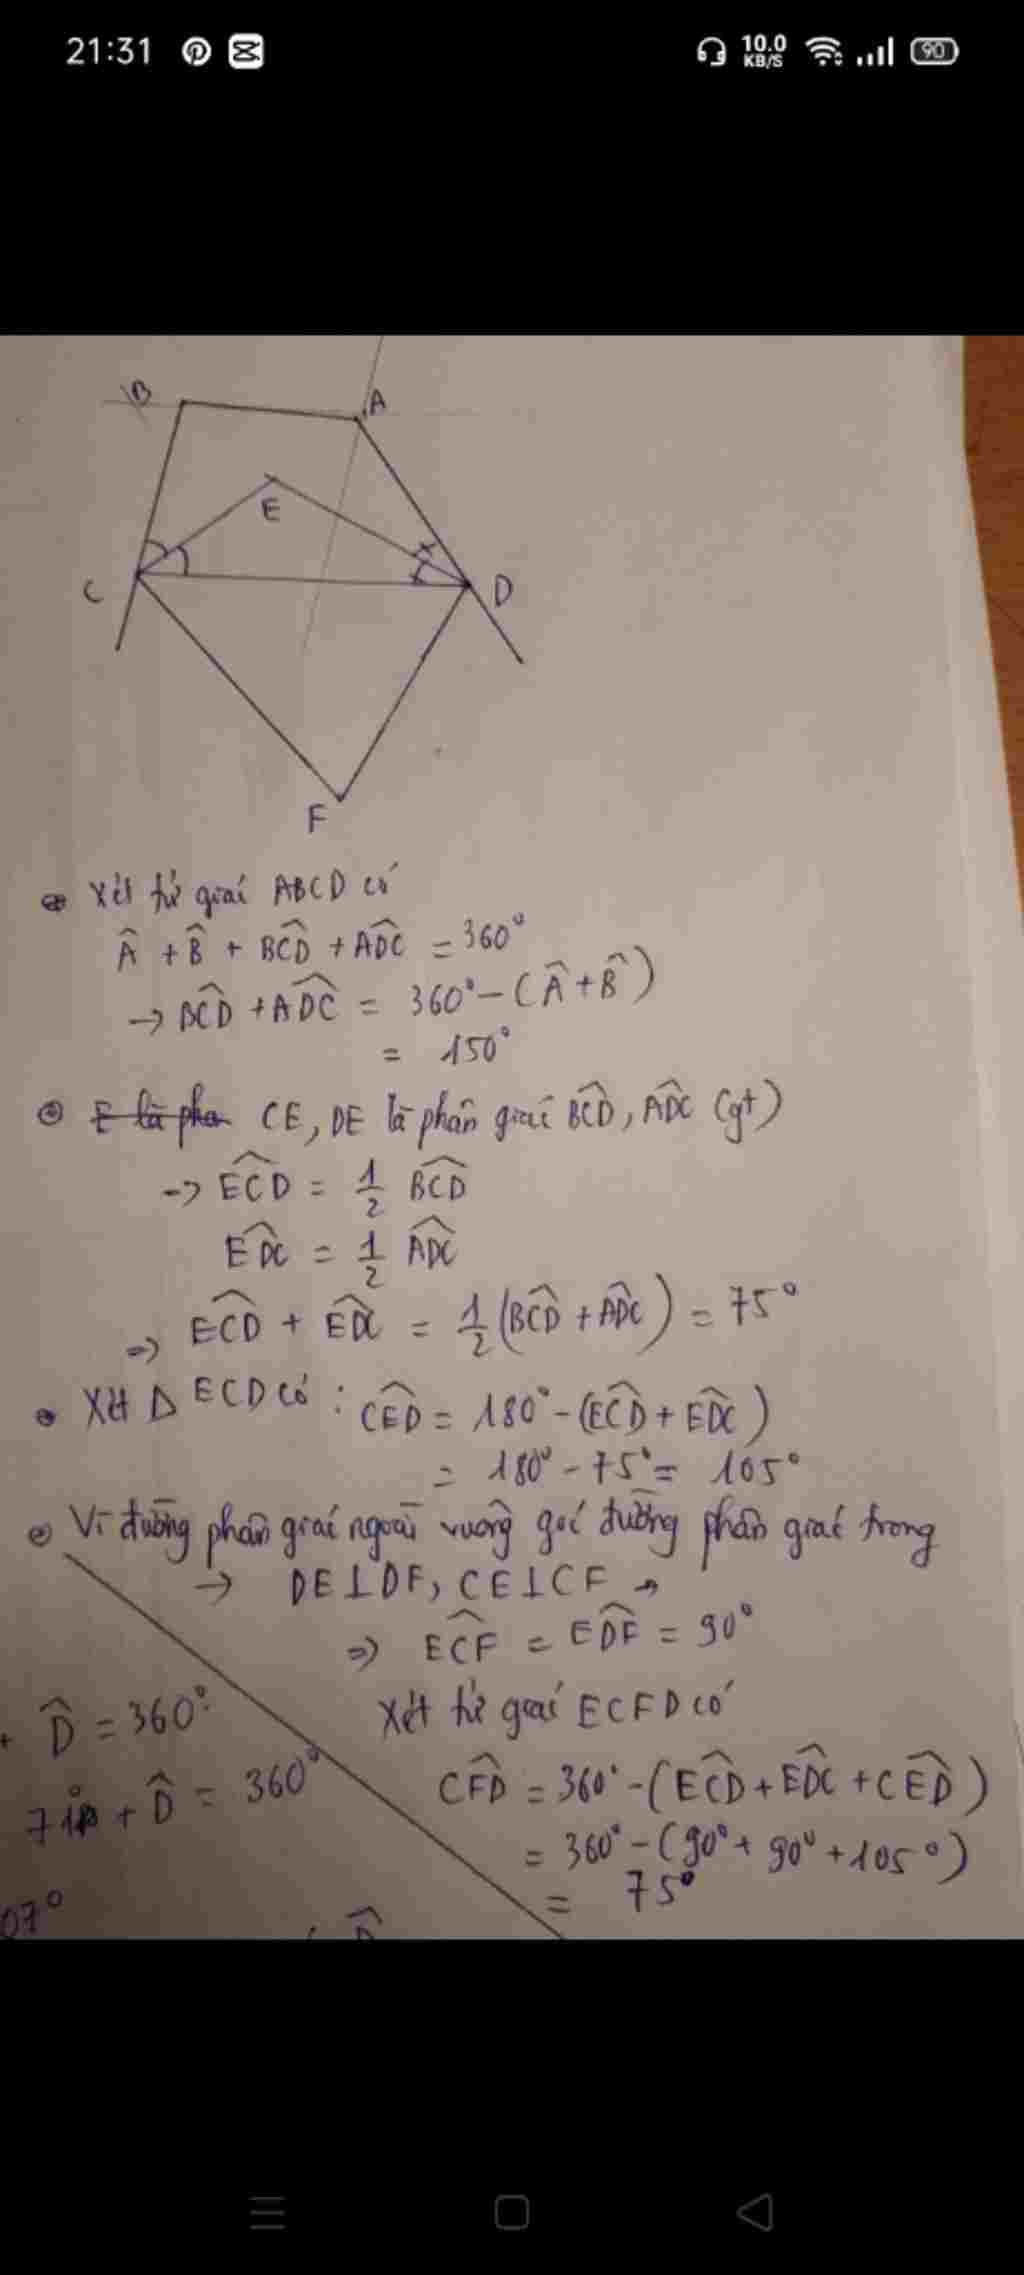 21:31
10.0
KB/S
90
B
A
E
C
D
F
Xét tứ giác ABCD có
Â + B̂ + BĈD + AD̂C = 360°
→ BĈD + AD̂C = 360° - (Â + B̂)
= 150°
E là pha CE, DE là phân giác BĈD, AD̂C (gt)
→ EĈD = 1/2 BĈD
ED̂C = 1/2 AD̂C
⇒ EĈD + ED̂C = 1/2 (BĈD + AD̂C) = 75°
Xét Δ ECD có : CÊD = 180° - (EĈD + ED̂C)
= 180° - 75° = 105°
Vì đường phân giác ngoài vuông góc đường phân giác trong
→ DE⊥DF, CE⊥CF
⇒ EĈF = ED̂F = 90°
Xét tứ giác ECFD có
CF̂D = 360° - (EĈD + ED̂C + CÊD)
= 360° - (90° + 90° + 105°)
= 75°
+ D̂ = 360°
+ D̂ = 360°
07°